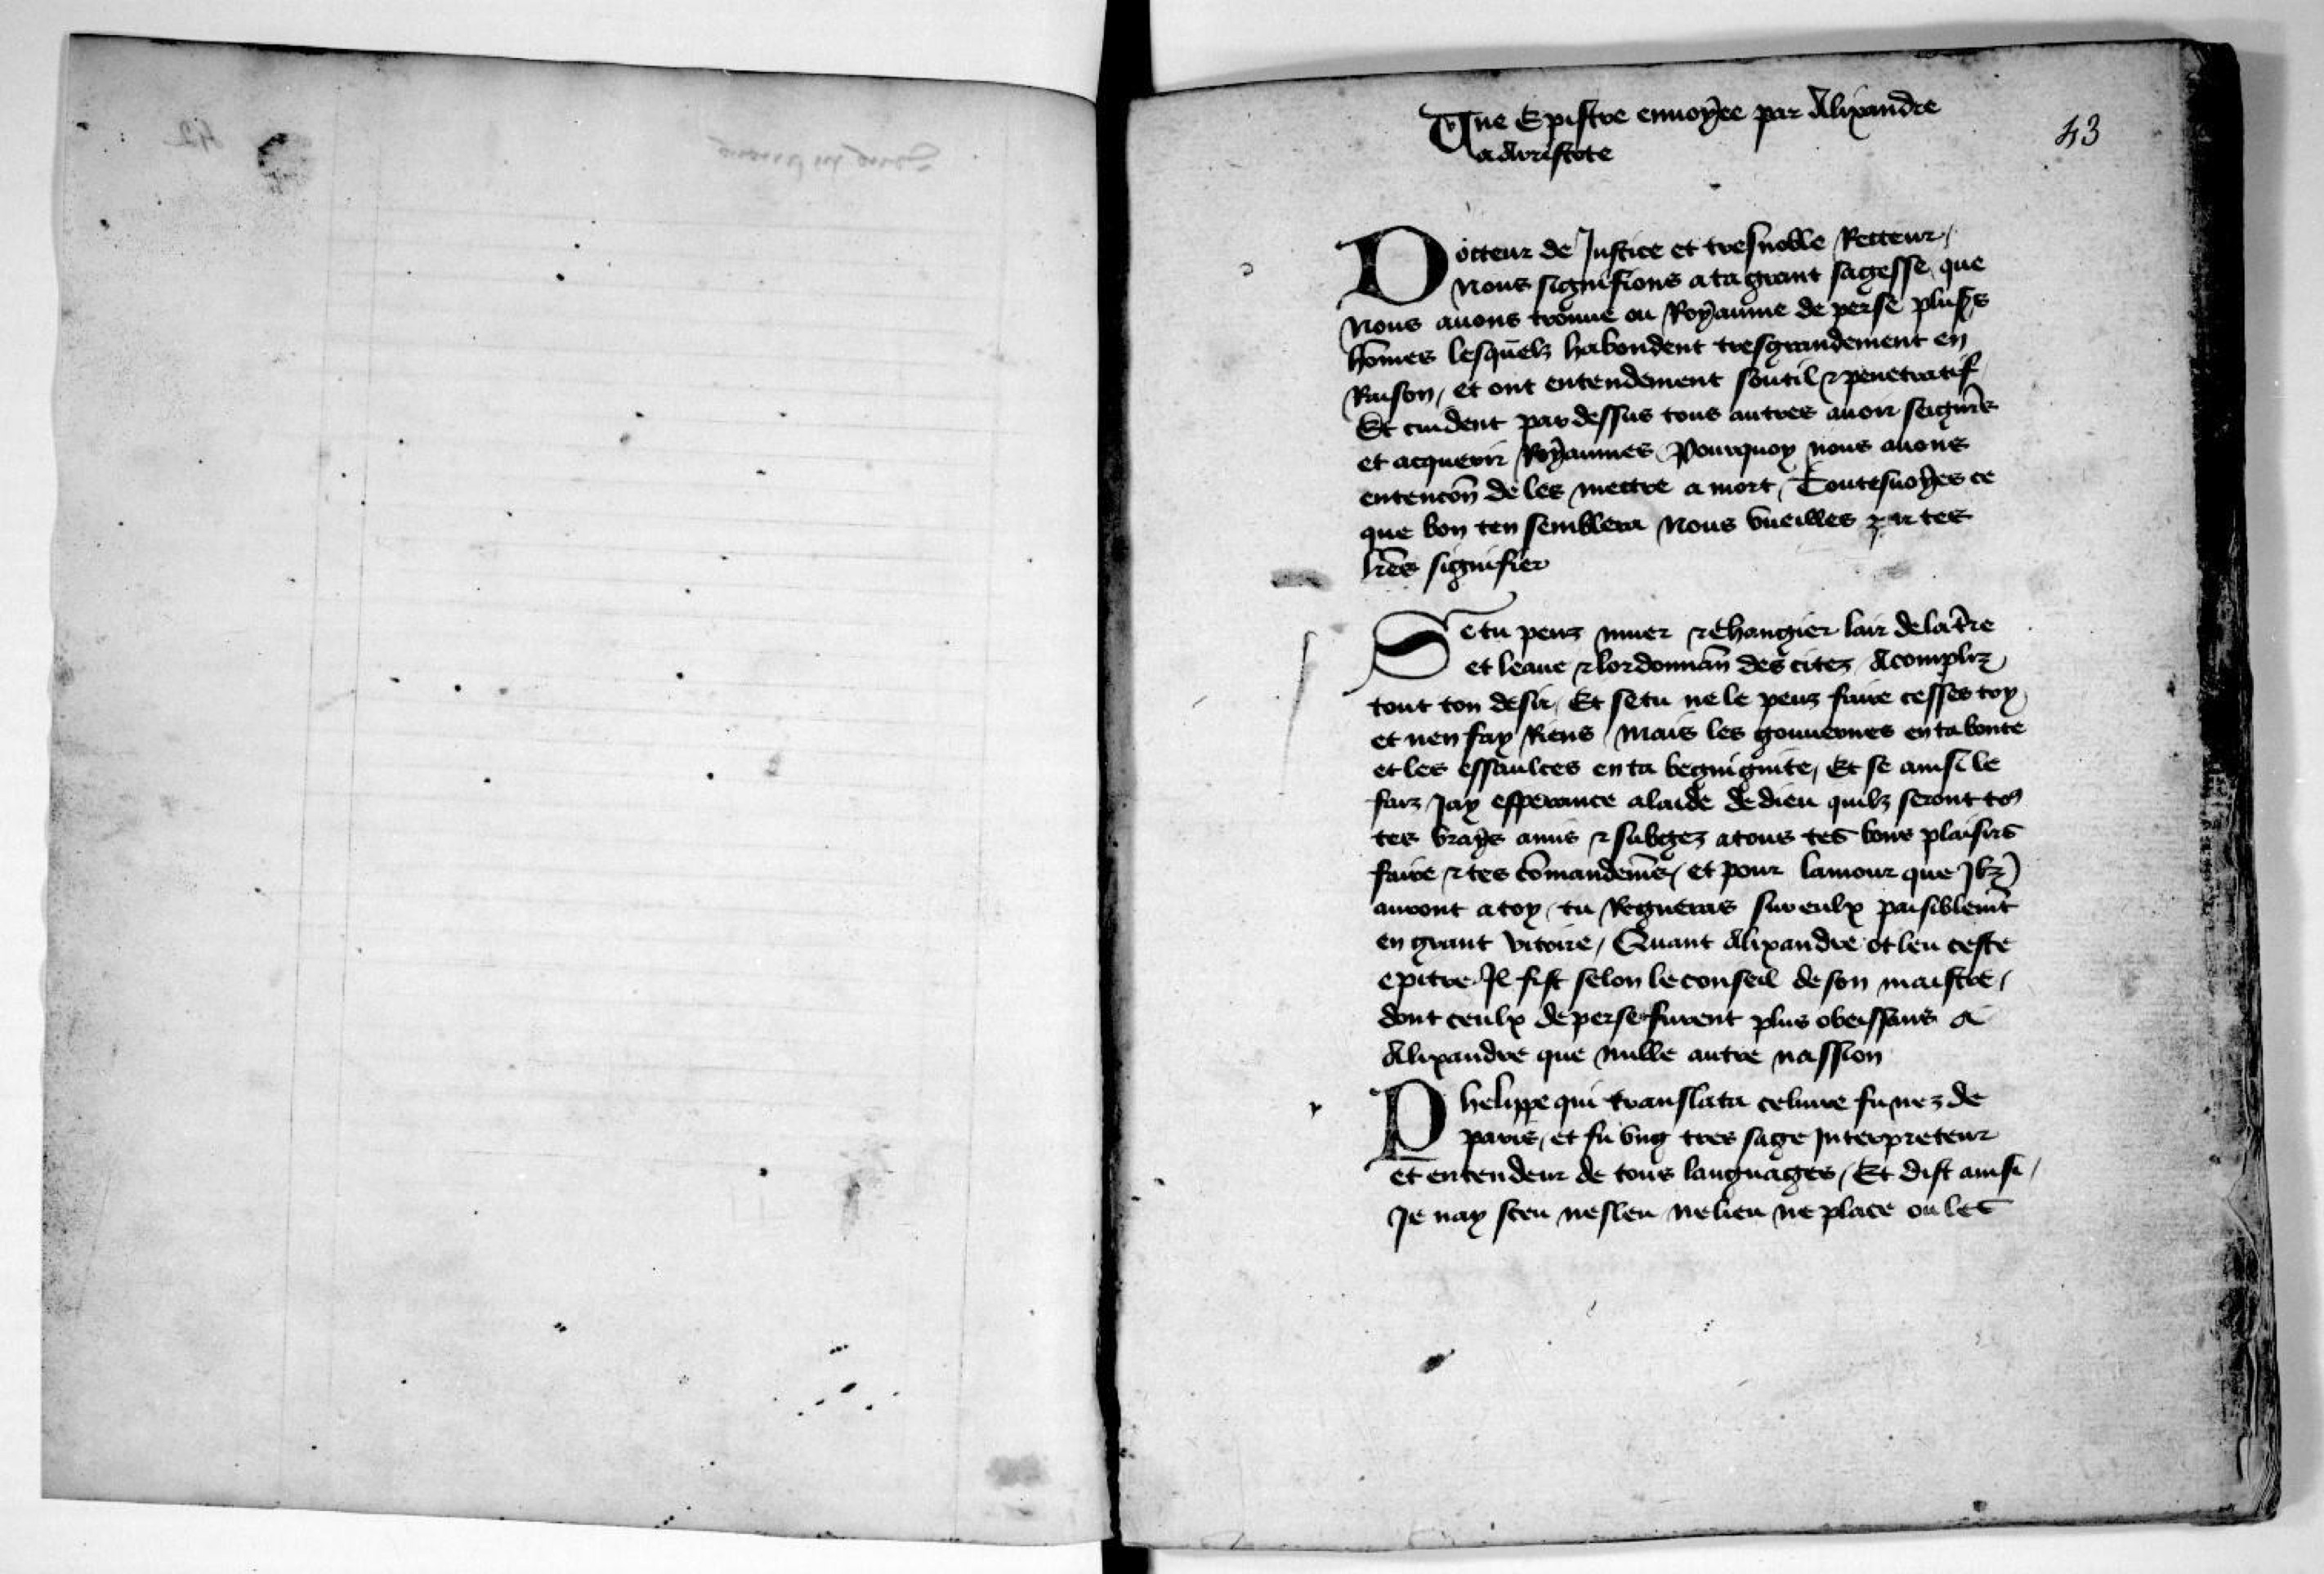 43
Une Epistre enuoyee par Alixandre
a Aristote
Docteur de Justice et tresnoble Recteur /
Nous signifions a ta grant sagesse que
Nous auons trouue ou Royaume de perse plus̃s
hõmes lesquelz habondent tresgrandement en
Raison / et ont entendement soutil ⁊ penetratif
Et cuident par dessus tous autres auoir seignr̃ie
et acquerir Royaumes Pourquoy nous auons
entencõn de les mettre a mort / Toutesuoyes ce
que bon ten semblera Nous vueilles par tes
lr̃es signifier
Se tu peuz muer ⁊ changier lair de la t̃re
et leaue ⁊ lordonnãn des citez Acompliz
tout ton desir / Et se tu ne le peuz faire cesses toy
et nen fay Riens / Mais les gouuernes en ta bonte
et les essaulces en ta begnignite / Et se ainsi le
faiz / Jay esperance a laide de dieu quilz seront to9
tes vrays amis ⁊ subgez a tous tes bons plaisirs
faire ⁊ tes cõmandem̃s / et pour lamour que Jlz
auront a toy / tu Regneras sur eulx paisiblem̃t
en grant victoire / Quant Alixandre ot leu ceste
epitre Jl fist selon le conseil de son maistre /
dont ceulx de perse furent plus obeissans a
Alixandre que nulle autre nassion
Phelippe qui translata ce liure fu nez de
paris / et fu vng tres sage Interpreteur
et entendeur de tous languages / Et dist ainsi /
Je nay sceu ne sleu ne lieu ne place ou les